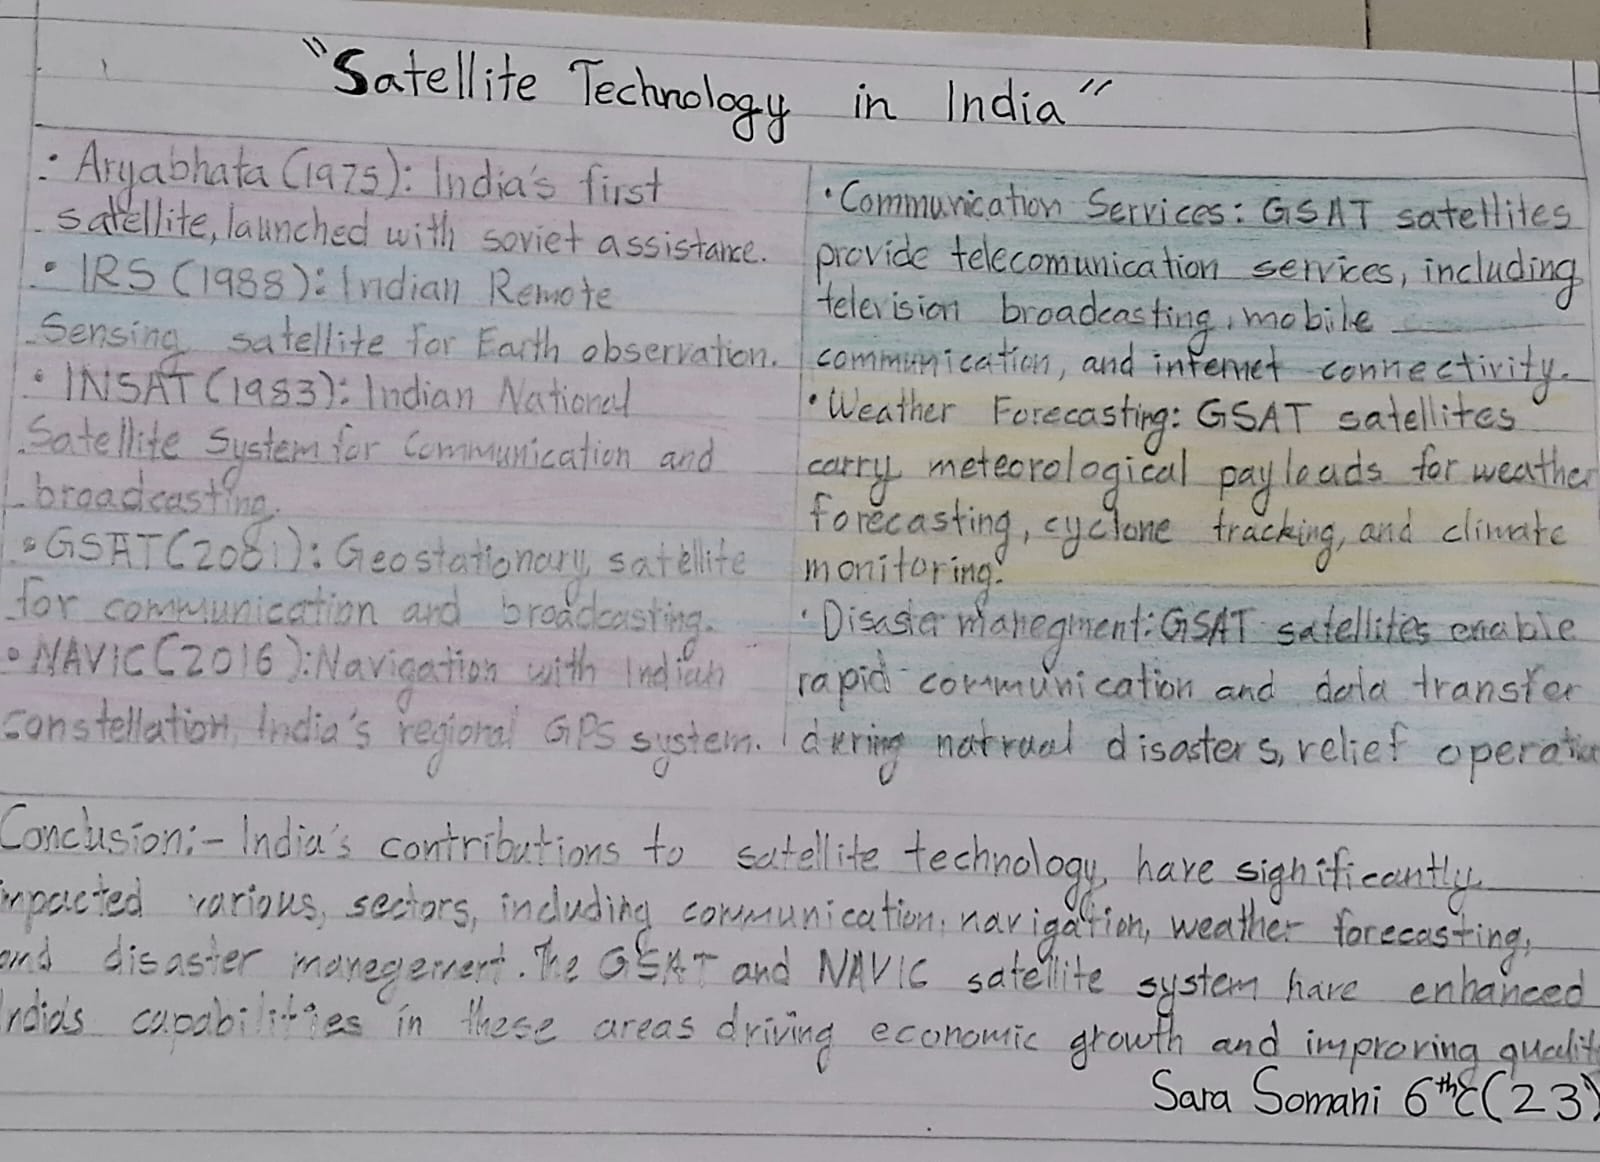 "Satellite Technology in India"
• Aryabhata (1975): India's first
satellite, launched with soviet assistance.
• IRS (1988): Indian Remote
Sensing satellite for Earth observation.
• INSAT (1983): Indian National
Satellite System for Communication and
broadcasting.
• GSAT (2001): Geostationary satellite
for communication and broadcasting.
• NAVIC (2016): Navigation with Indian
constellation, India's regional GPS system.
• Communication Services: GSAT satellites
provide telecomunication services, including
television broadcasting, mobile
communication, and internet connectivity.
• Weather Forecasting: GSAT satellites
carry meteorological payloads for weather
forecasting, cyclone tracking, and climate
monitoring.
• Disaster manegment: GSAT satellites enable
rapid communication and data transfer
during natrual disasters, relief operation
Conclusion:- India's contributions to satellite technology, have significantly
impacted various, sectors, including communication, navigation, weather forecasting,
and disaster manegement. The GSAT and NAVIC satellite system have enhanced
India's capabilities in these areas driving economic growth and improving quality
Sara Somani 6th C (23)